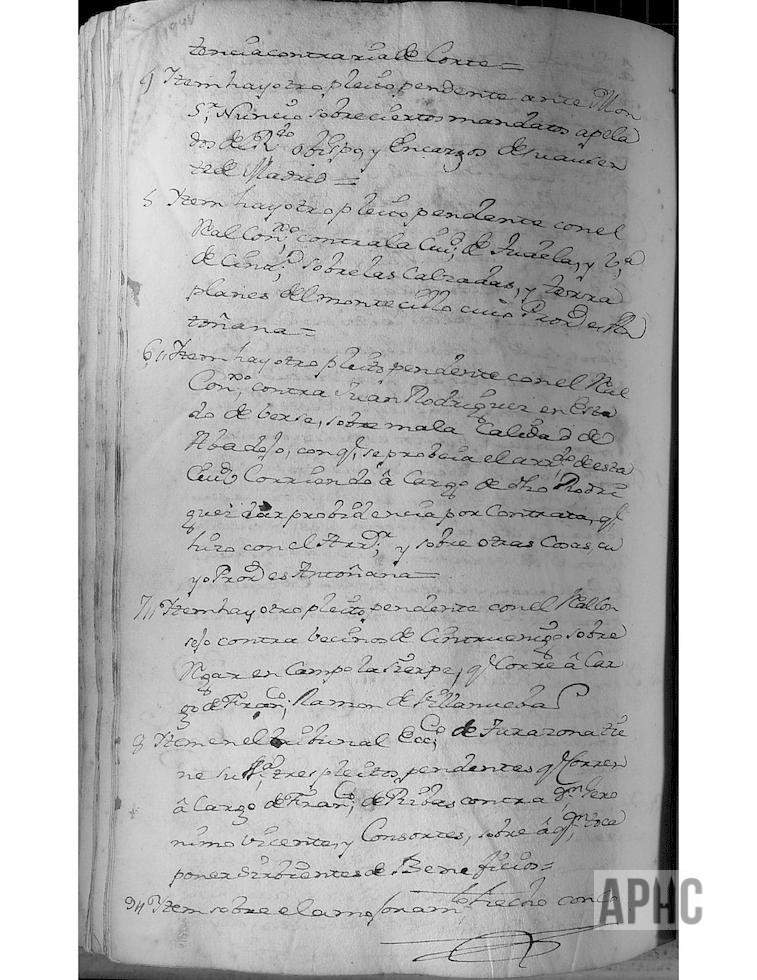 tencia contraria de Corte =
4 Item hay otro pleito pendente ante Mon
Sr. Nuncio sobre ciertos mandatos apela
dos del Rdo obispo, y Encargos de su auien
te de Madrid =
5 Item hay otro pleito pendente con el
Real Conxo, contra la Ciud, de Tudela, y va
de Cintro, sobre las Calzadas, y terra
planes del montecillo cuio Pror es An
toñana =
6,, Item hay otro pleito pendente con el Real
Conxo, contra Juan Rodriguez en Esta
do de verse, sobre mala Calidad de
Abadejo, con q, se probeia el arrdo de esta
Ciud Corriendo â Cargo de dho Rodri
guez dar probidencia por Contrata, q,
hizo con el Arrdr, y sobre otras Cosas, cu
yo Pror es Antoñana =
7,, Item hay otro pleito, pendente con el Real Con
sejo contra vecinos de Cintruenigo sobre
Regar en Campo la Sierpe, q, Corre â Car
go de Franco, Ramon de Villanueba
8 Item en el tribunal Ecco, de Tarazona tie
ne su Sa, tres pleitos pendentes q, Corren
â Cargo de Franco, de Ribas contra Dn Gero
nimo Vicente, y Consortes, sobre â qn, toca
poner sirbientes de Beneficios =
9,, Item sobre el amojonamto, hecho con Co
APHC